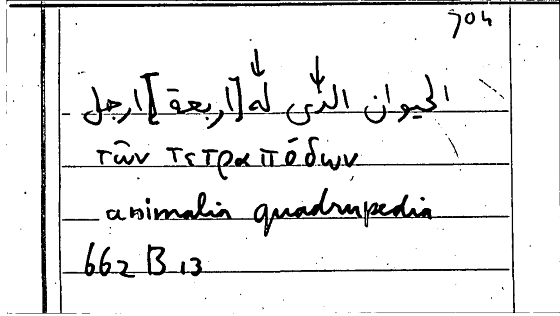 904
الحيوان الذى له [اربعة] ارجل
τῶν τετραπόδων
animalia quadrupedia
662 B 13